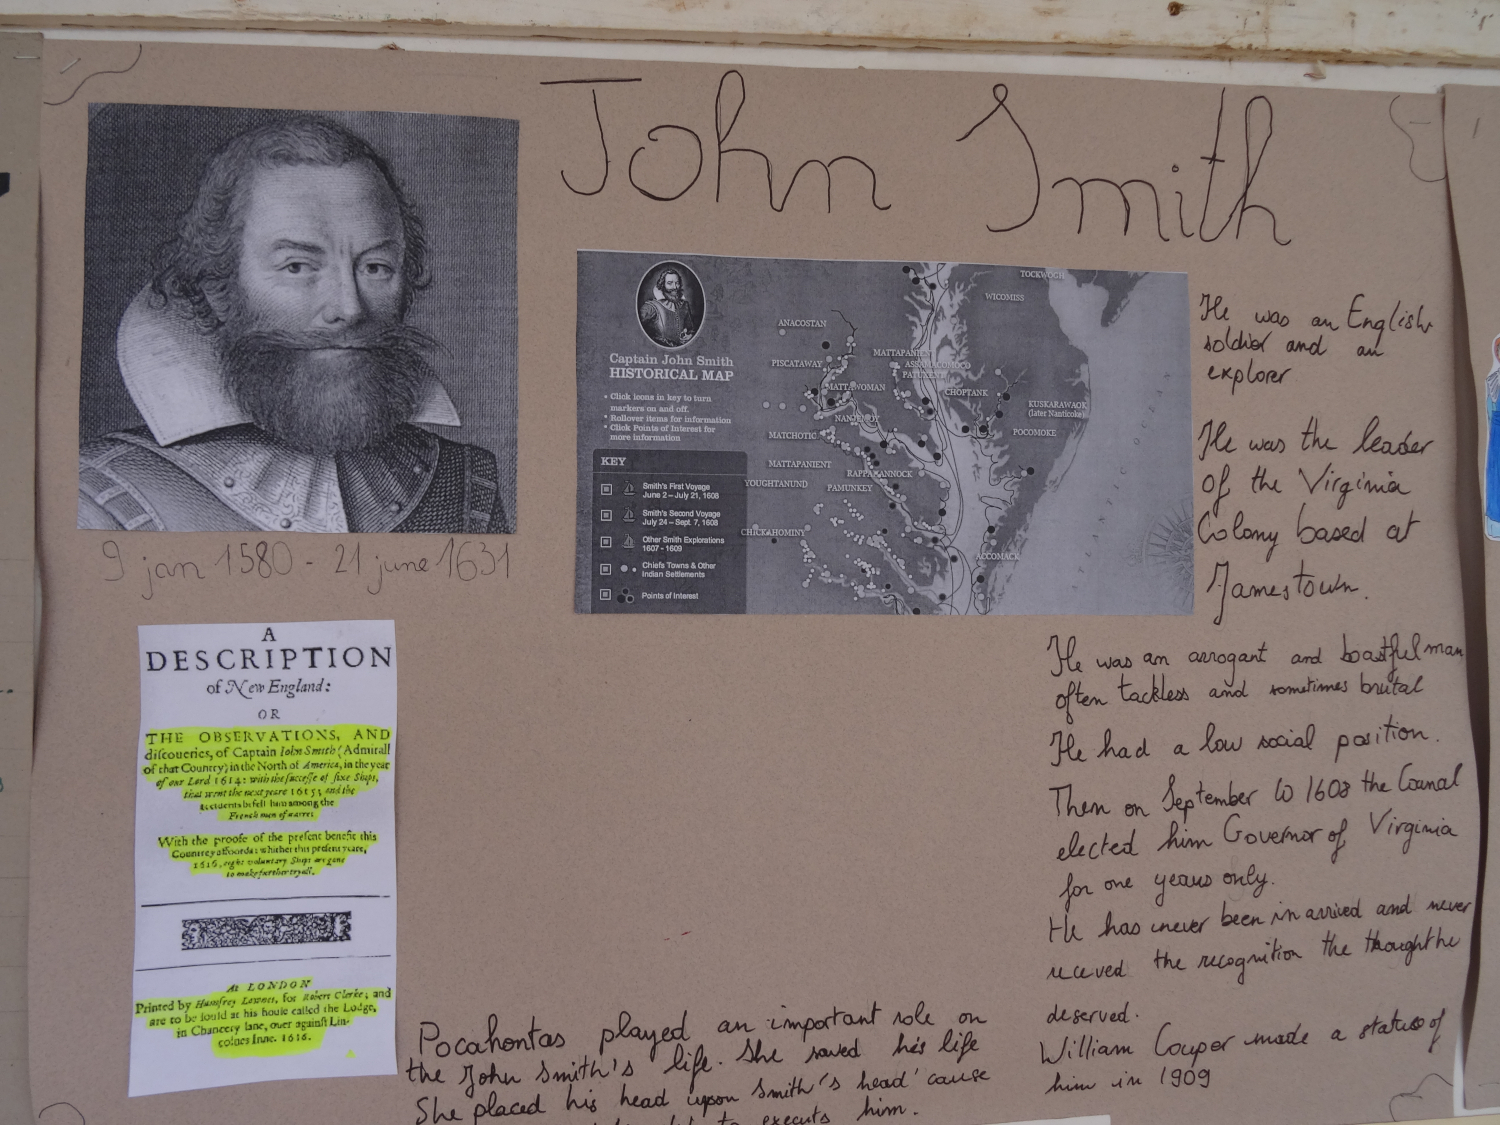 John Smith
9 jan 1580 - 21 june 1631
Captain John Smith
HISTORICAL MAP
• Click icons in key to turn
markers on and off.
• Rollover items for information
• Click Points of Interest for
more information
KEY
Smith's First Voyage
June 2 – July 21, 1608
Smith's Second Voyage
July 24 – Sept. 7, 1608
Other Smith Explorations
1607 - 1609
Chiefs Towns & Other
Indian Settlements
Points of Interest
TOCKWOGH
WICOMISS
ANACOSTAN
PISCATAWAY
MATTAPANIENT
ASSAMACOMOCO
PATUXENT
MATTAWOMAN
CHOPTANK
KUSKARAWAOK
(later Nanticoke)
NANJEMOY
POCOMOKE
MATCHOTIC
MATTAPANIENT
RAPPAHANNOCK
YOUGHTANUND
PAMUNKEY
CHICKAHOMINY
ACCOMACK
He was an English
soldier and an
explorer
He was the leader
of the Virginia
Colony based at
Jamestown.
He was an arrogant and boastful man
often tackless and sometimes brutal
He had a low social position.
Then on September 10 1608 the Council
elected him Governor of Virginia
for one years only.
He has never been in arrived and never
received the recognition the thought he
deserved.
William Couper made a statue of
him in 1909
A
DESCRIPTION
of New England:
OR
THE OBSERVATIONS, AND
discoueries, of Captain Iohn Smith (Admirall
of that Country) in the North of America, in the year
of our Lord 1614: with the successe of sixe Ships,
that went the next yeare 1615; and the
accidents befell him among the
French men of warre:
With the proofe of the present benefit this
Countrey affoords: whither this present yeare,
1616, eight voluntary Ships are gone
to make further tryall.
At LONDON
Printed by Humfrey Lownes, for Robert Clerke; and
are to be sould at his house called the Lodge,
in Chancery lane, ouer against Lin-
colnes Inne. 1616.
Pocahontas played an important role on
the John Smith's life. She saved his life
She placed his head upon Smith's head 'cause
to executs him.